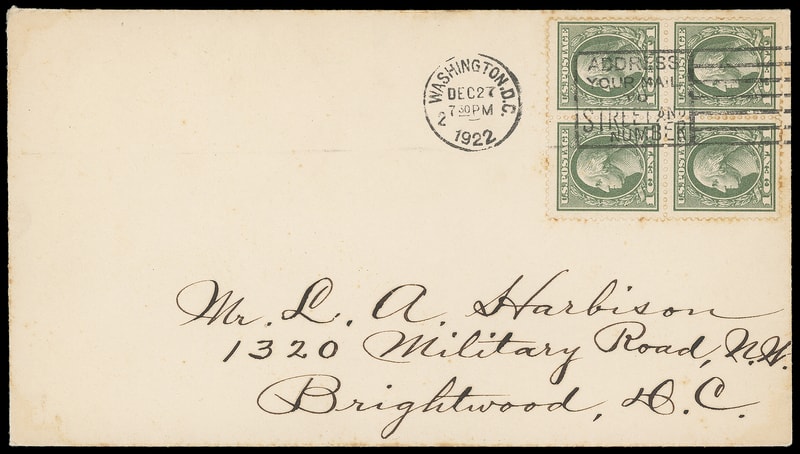 WASHINGTON, D.C.
DEC 27
7 30 PM
2
1922
ADDRESS
YOUR MAIL
TO
STREET AND
NUMBER
U.S. POSTAGE
1 CENT
U.S. POSTAGE
1 CENT 1
U.S. POSTAGE
1 CENT 1
U.S. POSTAGE
1 CENT 1
Mr. L. A. Harbison
1320 Military Road, N.W.
Brightwood, D.C.